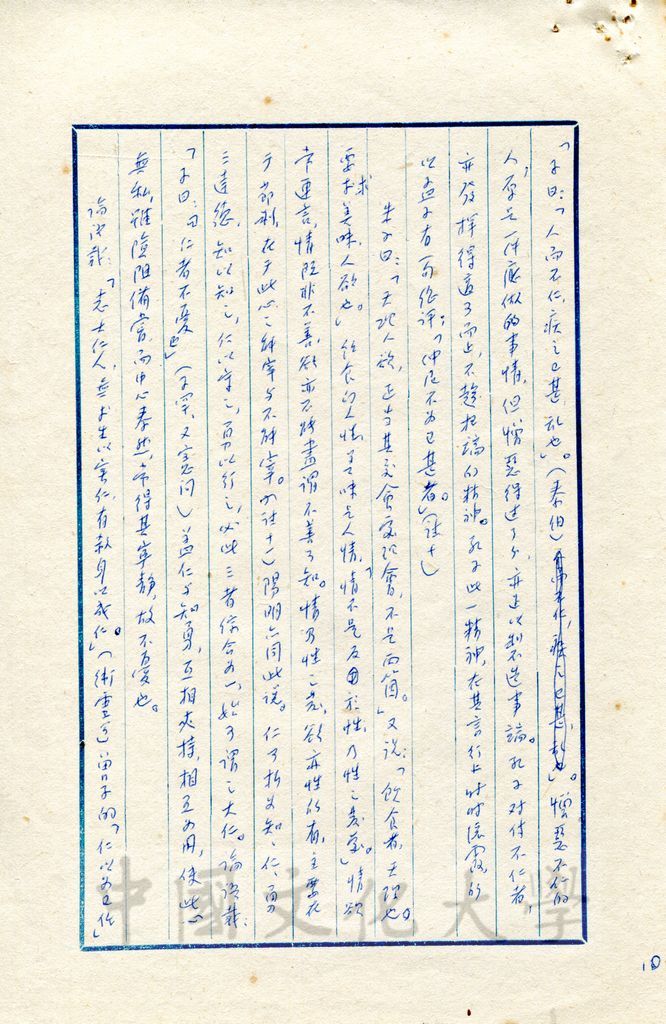 「子曰:「人而不仁,疾之已甚,亂也」。(泰伯)憎惡不仁的
人,原是一件應做的事情,但憎惡得過了分,亦足以製造事端。孔子對付不仁者,
亦發揮得適可而止,不趨極端的精神。孔子此一精神,在其言行上時時流露,的
以孟子有一句總評:「仲尼不為已甚者」
朱子曰:「天理人欲,正當其交會處理會,不是兩箇。」又說:「飲食者,天理也。
要求美味,人欲也」。飲食的人性,美味是人情,情不是反於性,乃性之發。」情欲
常連言,情既非不善,欲亦不能盡謂不善可知。情乃性之發,欲亦性的有,主要在
于節制,在于此心之能宰與不能宰。陽明亦同此說。仁可析為知、仁、勇
三達德,知以知之,仁以守之,勇以行之,必此三者綜合為一,始可謂之大仁。論語載:
「子曰:曰仁者不憂也」(子罕,又憲問)蓋仁與知勇,互相夾持,相互為用,使此心
無私,雖險阻備嘗,而中心泰然,常得其寧靜,故不憂也。
論語載:「志士仁人,無求生以害仁,有殺身以成仁」。(衛靈公)曾子的「仁以為己任」
10
中國文化大學